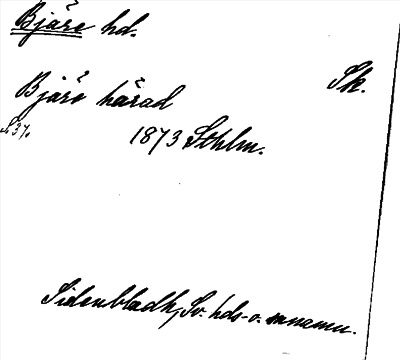 Bjäre hd.
Sk.
Bjäre härad
S. 37. 1873 Sthlm.
Sidenbladh, Sv. hds- o. snnamn.